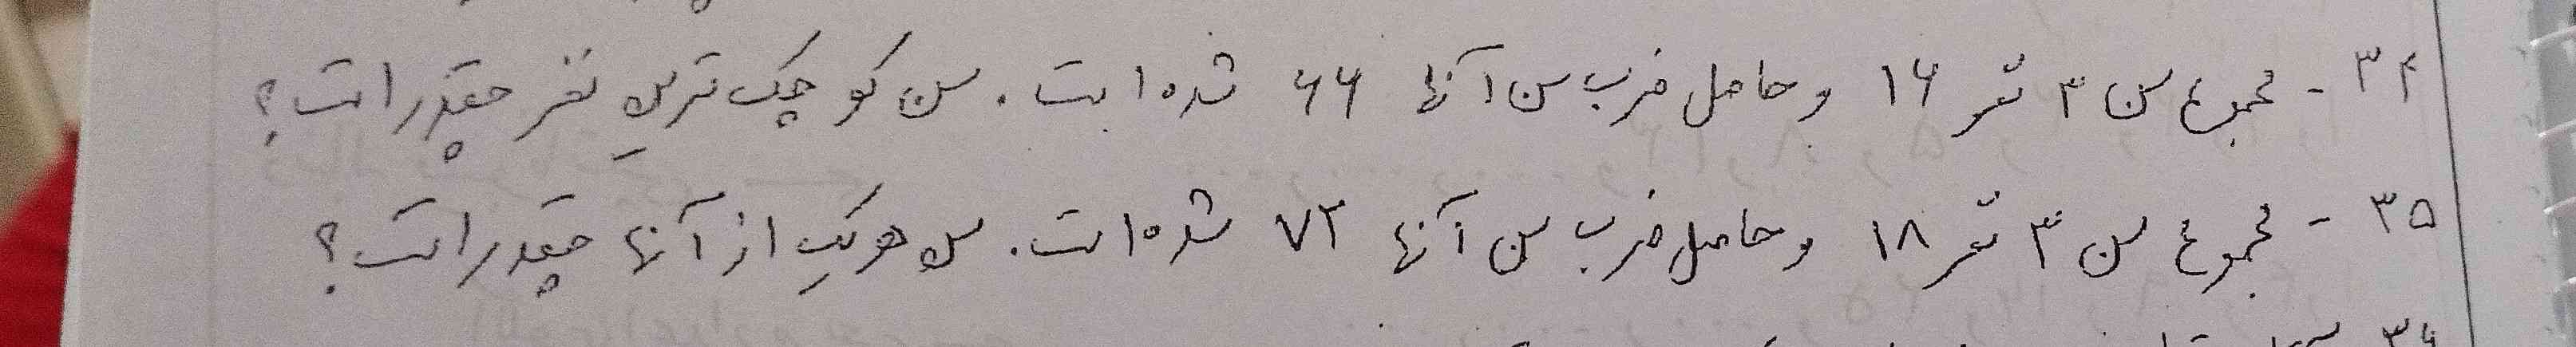 ۳۴ - مجموع سن ۳ نفر ۱۶ و حاصل ضرب سن آنها ۶۶ شده است. سن کوچک ترین نفر چقدر است؟
۳۵ - مجموع سن ۳ نفر ۱۸ و حاصل ضرب سن آنها ۷۲ شده است. سن هریک از آنها چقدر است؟
۳۶